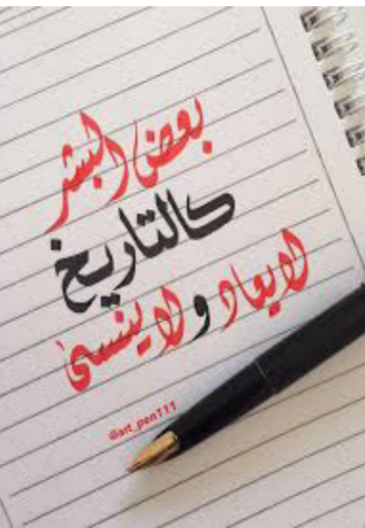 بعض البشر
كالتاريخ
لا يعاد و لا ينسى
@art_pen111